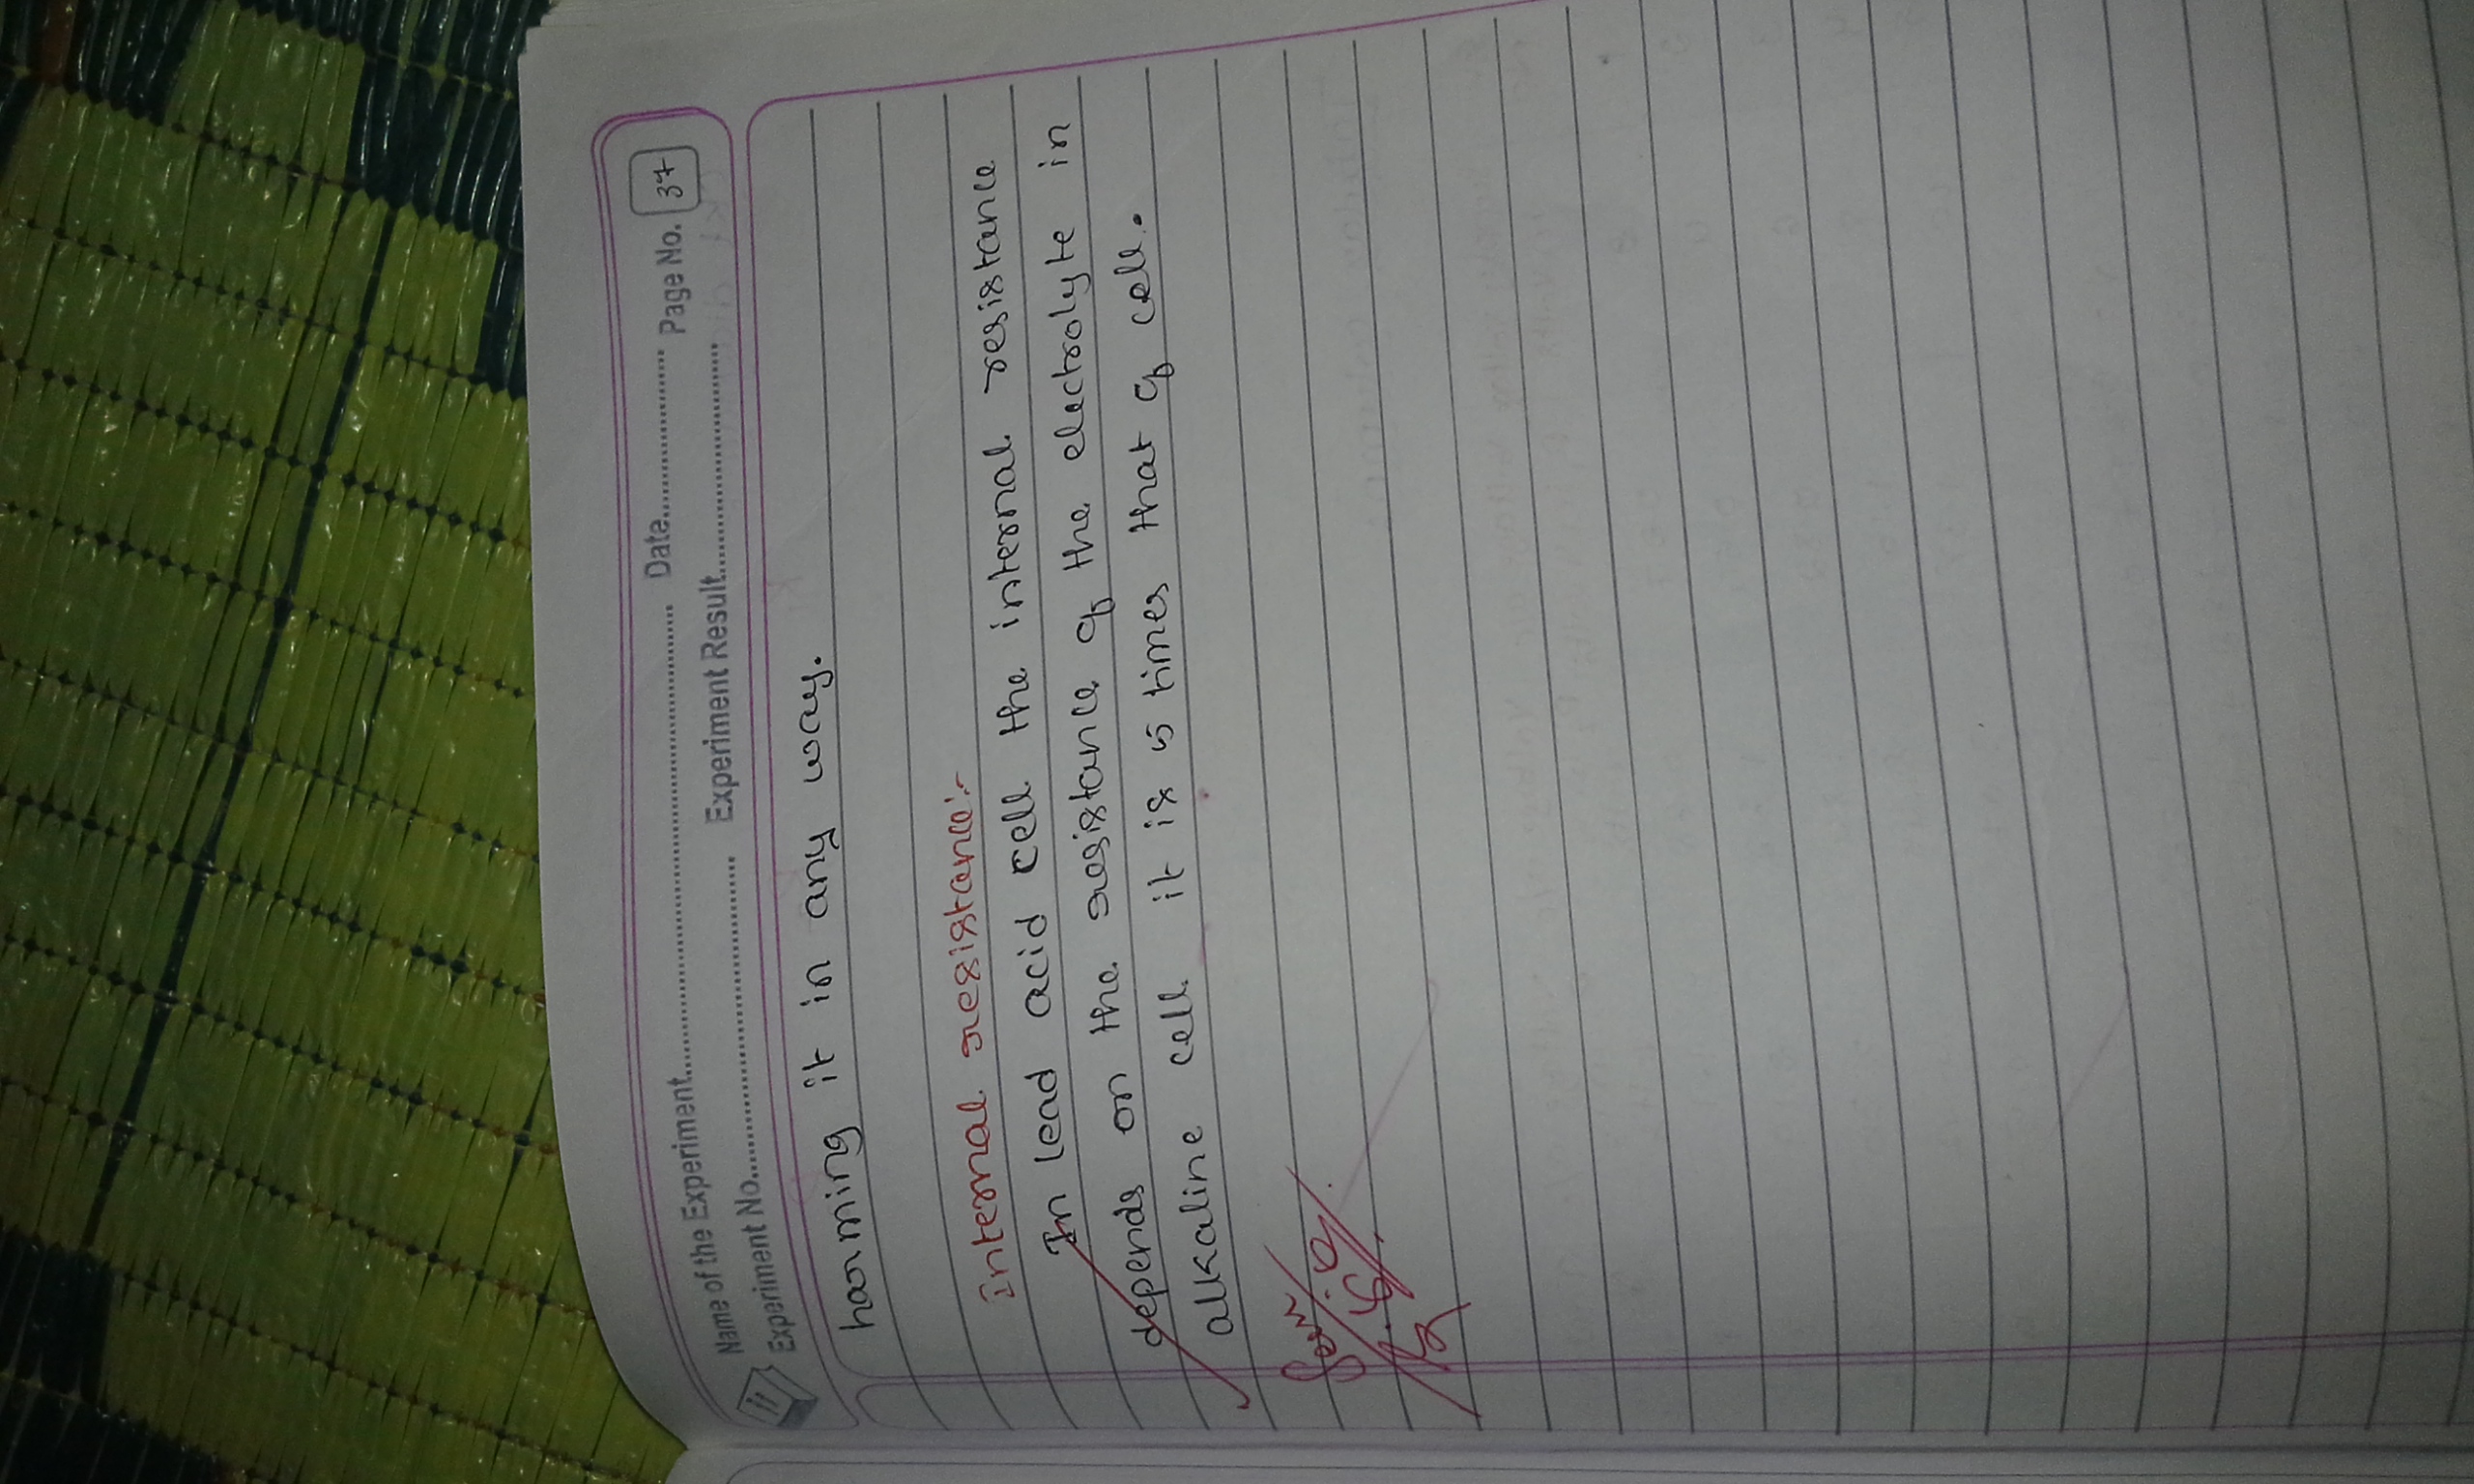 Name of the Experiment............ Date............ Page No. 37
Experiment No............ Experiment Result............
harming it in any way.
Internal resistance:-
In lead acid cell the internal resistance
depends on the resistance of the electrolyte in
alkaline cell it is 5 times that of cell.